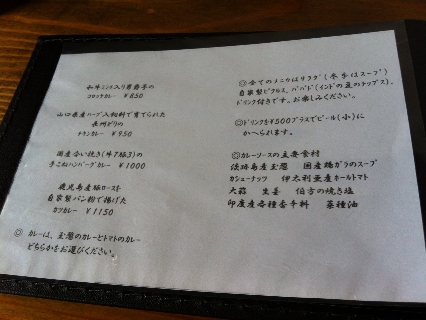 和牛ミンチ入り男爵芋の
コロッケカレー ¥850
山口県産ハーブ入飼料で育てられた
長州どりの
チキンカレー ¥950
国産合い挽き(牛7豚3)の
手ごねハンバーグカレー ¥1000
鹿児島産豚ロースト
自家製パン粉で揚げた
カツカレー ¥1150
◎ カレーは、玉葱のカレーとトマトのカレー
どちらかをお選びください。
◎全てのメニューはサラダ(冬季はスープ)
自家製ピクルス、パパド(インドの豆のチップス)、
ドリンク付きです。お楽しみください。
◎ドリンクを¥500プラスでビール(小)に
かへられます。
◎カレーソースの主要食材
淡路島産玉葱 国産鶏ガラのスープ
カシューナッツ 伊太利亜産ホールトマト
大蒜 生姜 伯方の焼き塩
印度産各種香辛料 菜種油